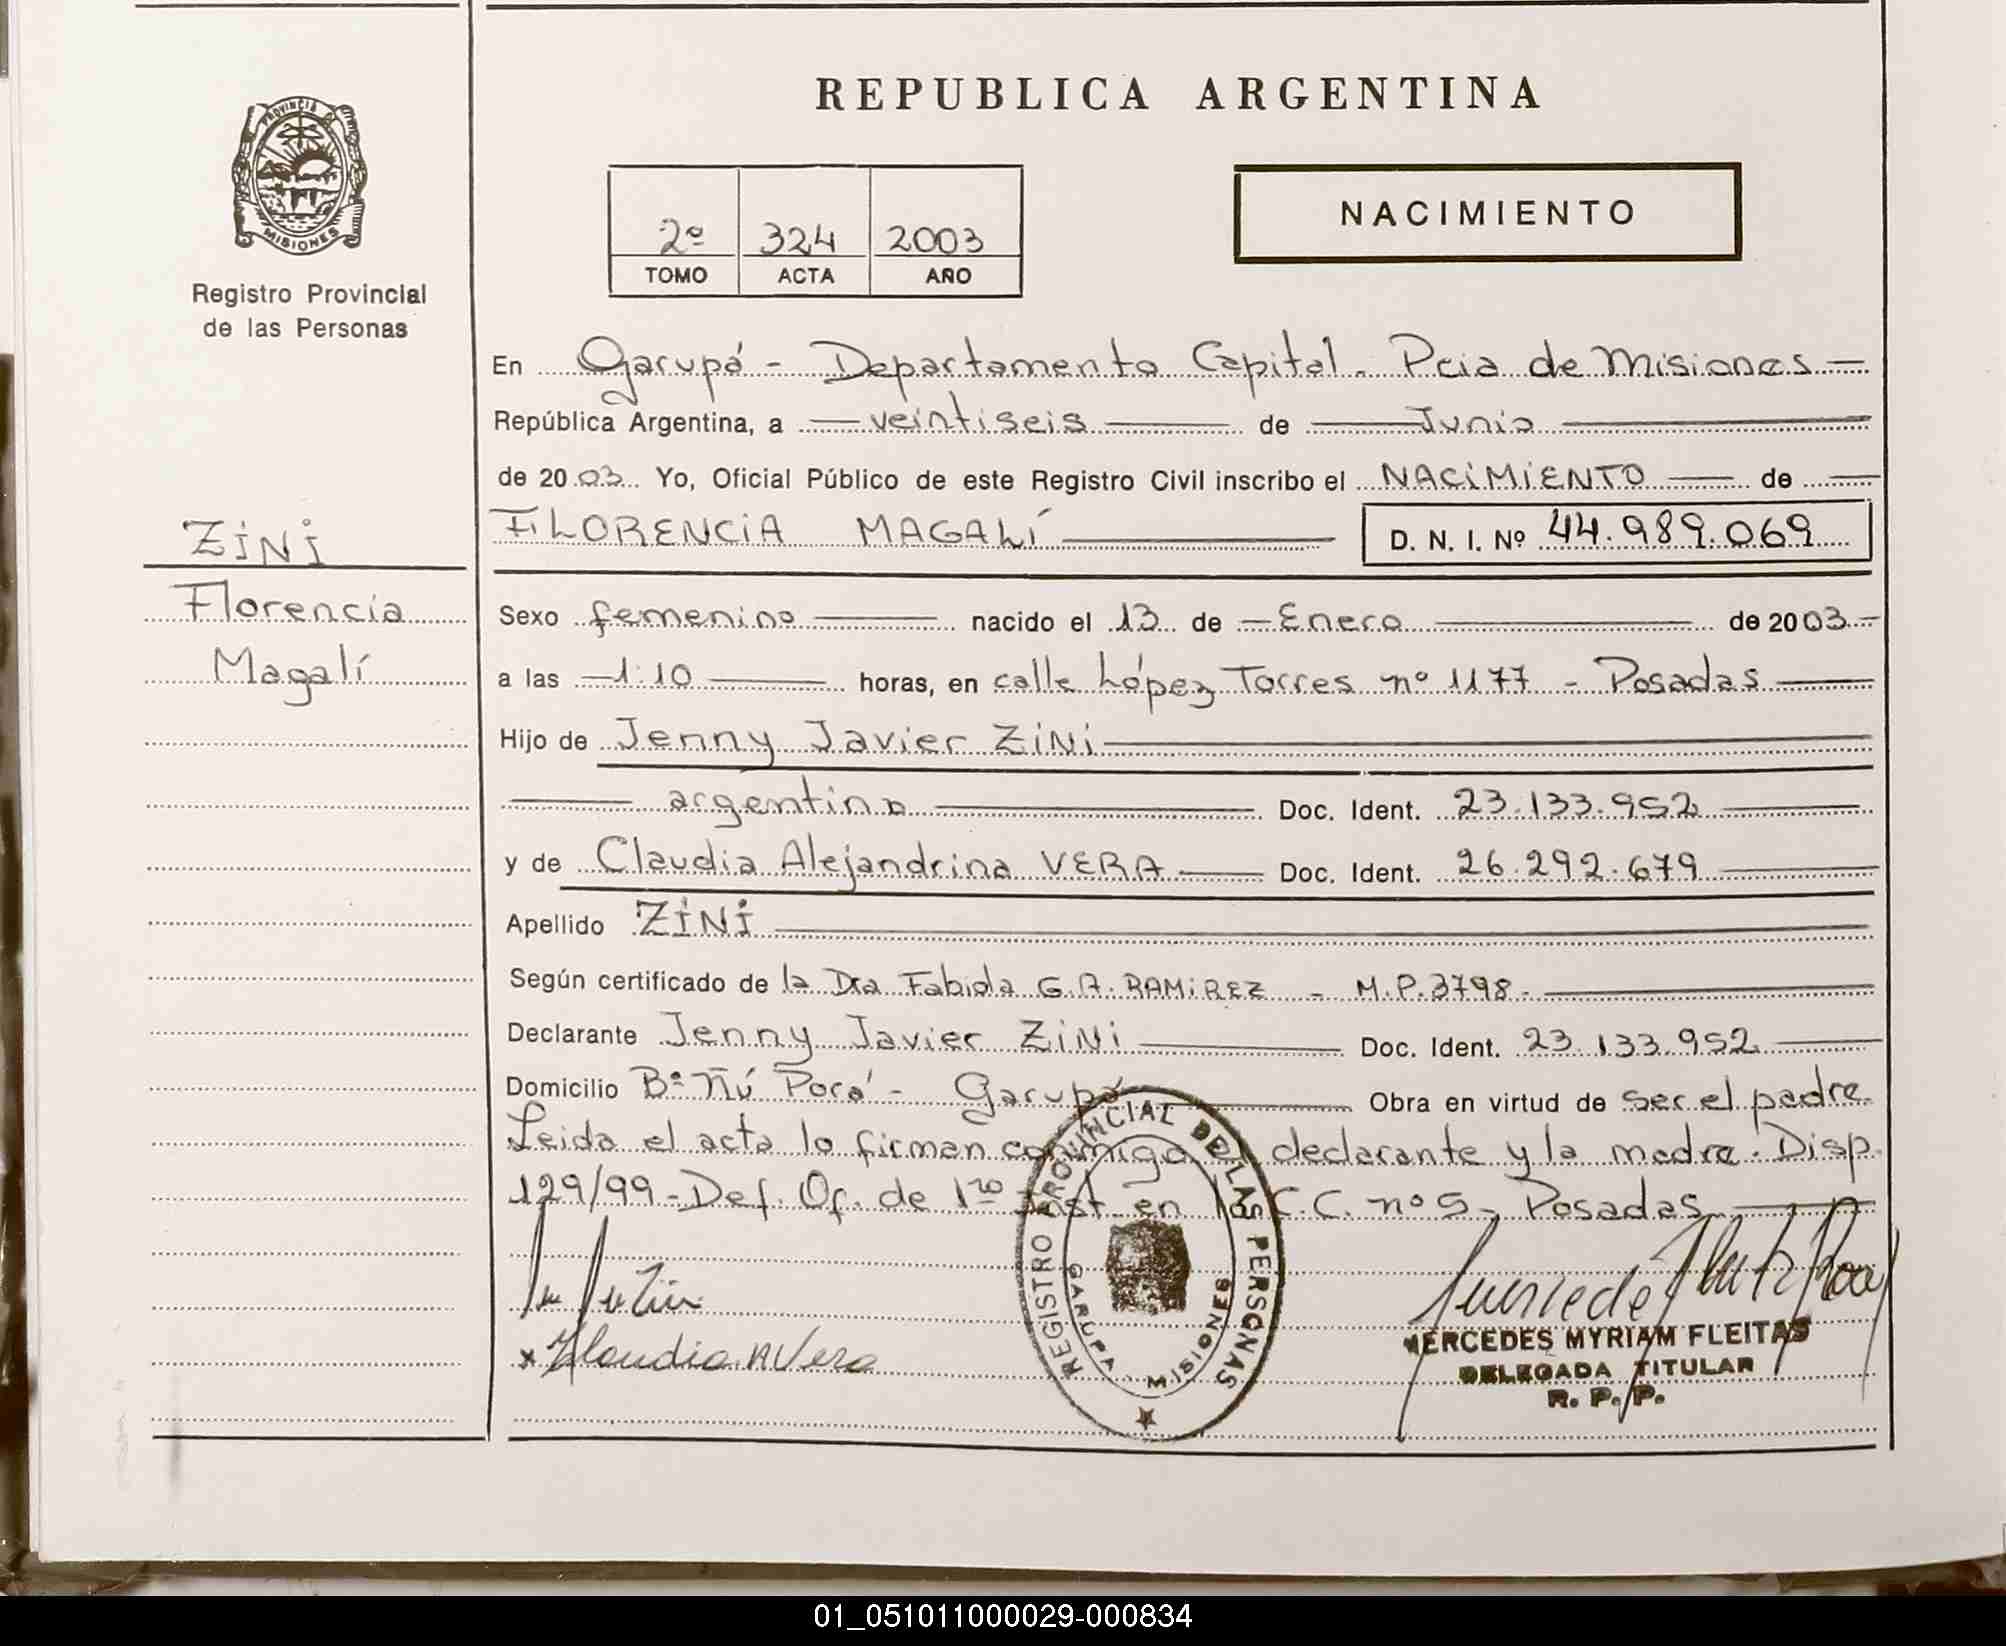 PROVINCIA DE
MISIONES
Registro Provincial
de las Personas
ZINI
Florencia
Magalí
REPUBLICA ARGENTINA
2º 324 2003
TOMO ACTA AÑO
NACIMIENTO
En Garupá - Departamento Capital. Pcia de Misiones
República Argentina, a veintiseis de Junio
de 2003 Yo, Oficial Público de este Registro Civil inscribo el NACIMIENTO de
FLORENCIA MAGALÍ D. N. I. Nº 44.989.069
Sexo femenino nacido el 13 de Enero de 2003
a las 1:10 horas, en calle López Torres nº 1177 - Posadas
Hijo de Jenny Javier ZINI
argentino Doc. Ident. 23.133.952
y de Claudia Alejandrina VERA Doc. Ident. 26.292.679
Apellido ZINI
Según certificado de la Dra Fabiola G.A. RAMIREZ - M.P.3798.
Declarante Jenny Javier ZINI Doc. Ident. 23.133.952
Domicilio Bº Ñú Porá - Garupá Obra en virtud de ser el padre.
Leida el acta lo firman conmigo el declarante y la madre. Disp.
129/99 - Def. Of. de 1ro Inst. en lo C.C. nº 5 - Posadas
REGISTRO PROVINCIAL DE LAS PERSONAS
GARUPA MISIONES
Klaudia A Vera
MERCEDES MYRIAM FLEITAS
DELEGADA TITULAR
R. P. P.
01_051011000029-000834